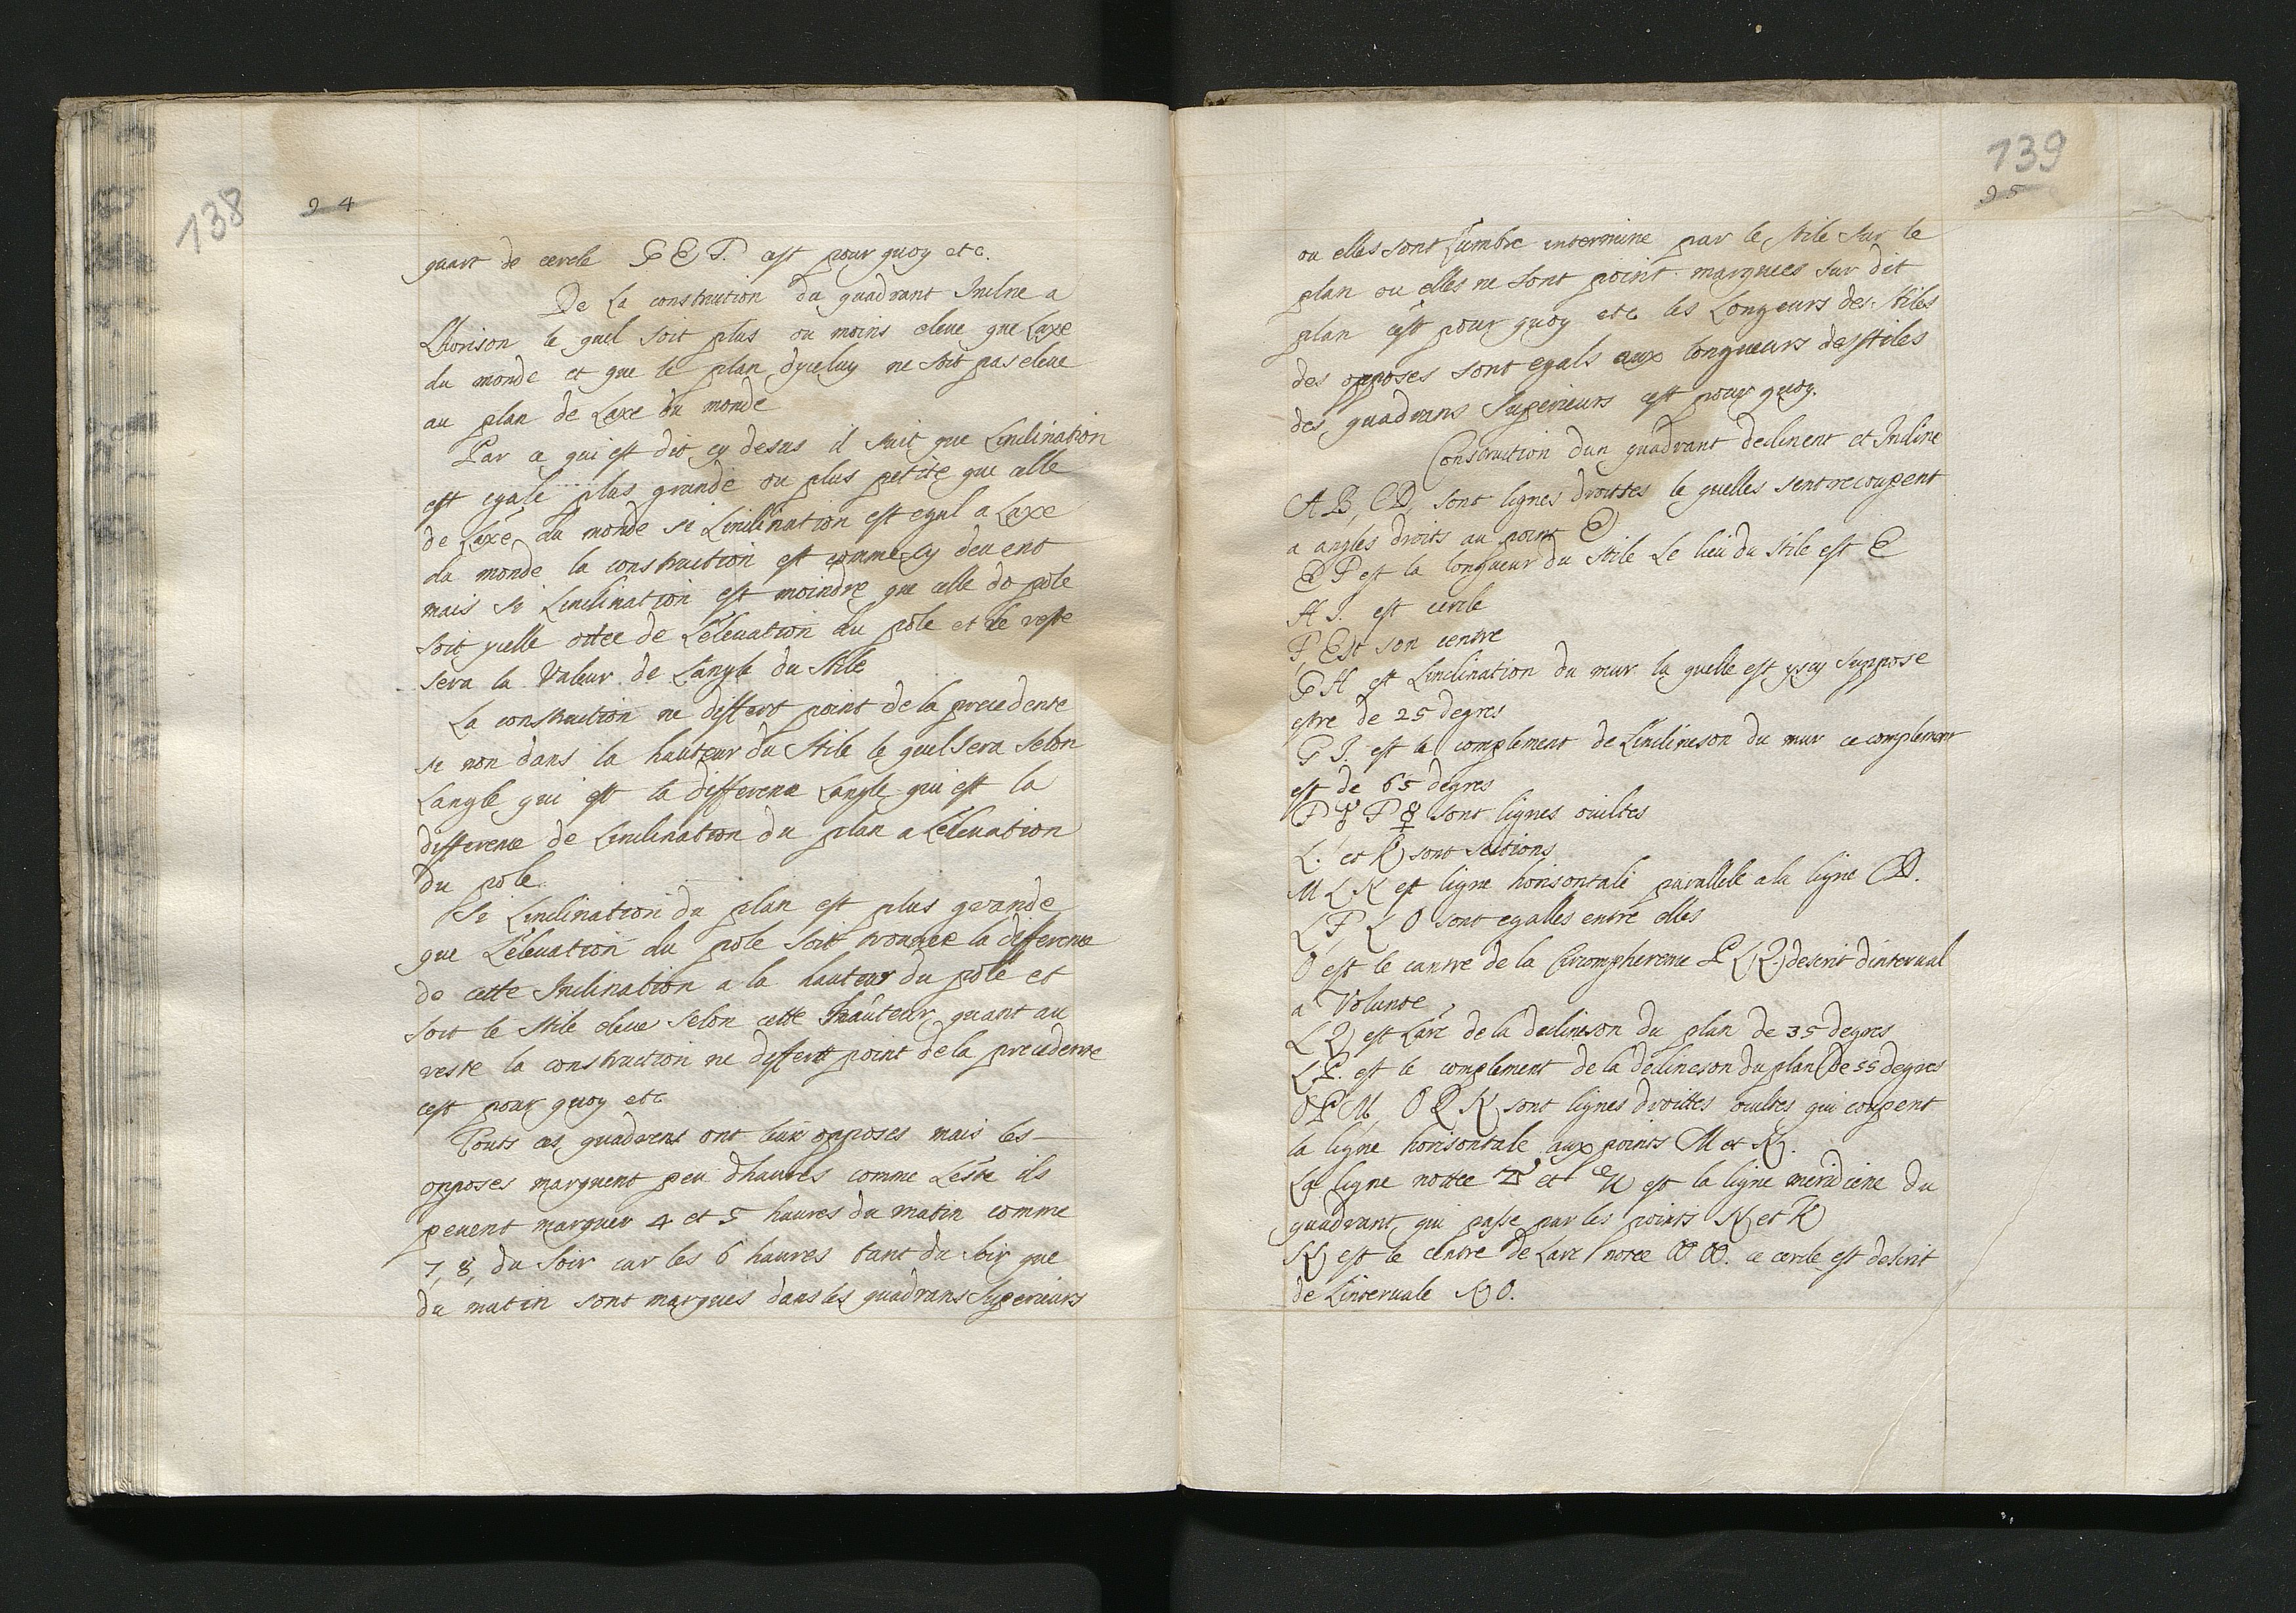 138
24
quart de cercle G E P. cest pour quoy etc.
De La construction du quadrant Incline a
Lhorison le quel soit plus ou moins eleue que Laxe
du monde et que le plan dyceluy ne soit pas eleue
au plan de Laxe du monde
Par ce qui est dit cy desus il suit que Linclination
est egale plus grande ou plus petite que celle
de Laxe du monde si Linclination est egal a Laxe
du monde la construction est comme cy deuent
mais si Linclination est moindre que celle do pole
soit ycelle ottee de Léleuation du pôle et le reste
sera la Valeur de Langle du stile
La construction ne differt point de la precedente
si non dans la hauteur du stile le quel sera selon
Langle qui est la difference Langle qui est la
difference de Linclination du plan a Léleuation
du pole.
Si Linclination du plan est plus grande
que Léleuation du pole soit trouuee la difference
de cette Inclination a la hauteur du pole et
soit le stile eleue selon cette hauteur quant au
reste la construction ne differt point de la precedente
cest pour quoy etc
Touts ces quadrens ont leur opposes mais les
opposes marquent peu dhaures comme Leste ils
peuent marquer 4 et 5 haures du matin comme
7, 8, du soir car les 6 haures tant du soir que
du matin sont marques dans les quadrans superieurs
139
25
ou elles sont Lumbre intermine par le stile sur le
plan ou elles ne sont point marquees sur dit
plan cest pour quoy etc les Longeurs des stiles
des opposes sont egals aux longueurs des stiles
des quadrans superieurs cest pour quoy.
Construction dun quadrant declinent et Incline
A B, C D, sont lignes droittes le quelles sentrecoupent
a angles droits au point E
E F est la longueur du stile Le lieu du stile est E
H I. est cercle
F Est son centre
G H est Linclination du mur la quelle est ycy suppose
estre de 25 degres
G I. est le complement de Linclineson du mur ce complement
est de 65 degres
F ☿ F ♀ sont lignes ocultes
L. et K sont sections
M L N est ligne horisontale parallele a la ligne C D.
L F L O sont egalles entre elles
O est le cantre de la Circompherence P L Q descrit dinterual
a Volunte,
L Q est Larc de la declineson du plan de 35 degres
L P. est le complement de la declineson du plan De 55 degres
O P M, O Q N sont lignes droittes ocultes qui coupent
la ligne horisontale aux points M et N.
La ligne nottee et est la ligne meridiene du
quadrant qui passe par les points N et K
N est le centre de Larc notee ce cercle est descrit
de Linteruale N O.